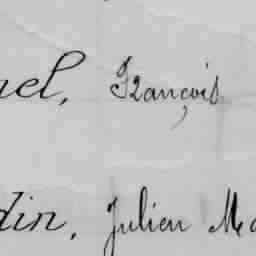 el, François
din, Julien Ma